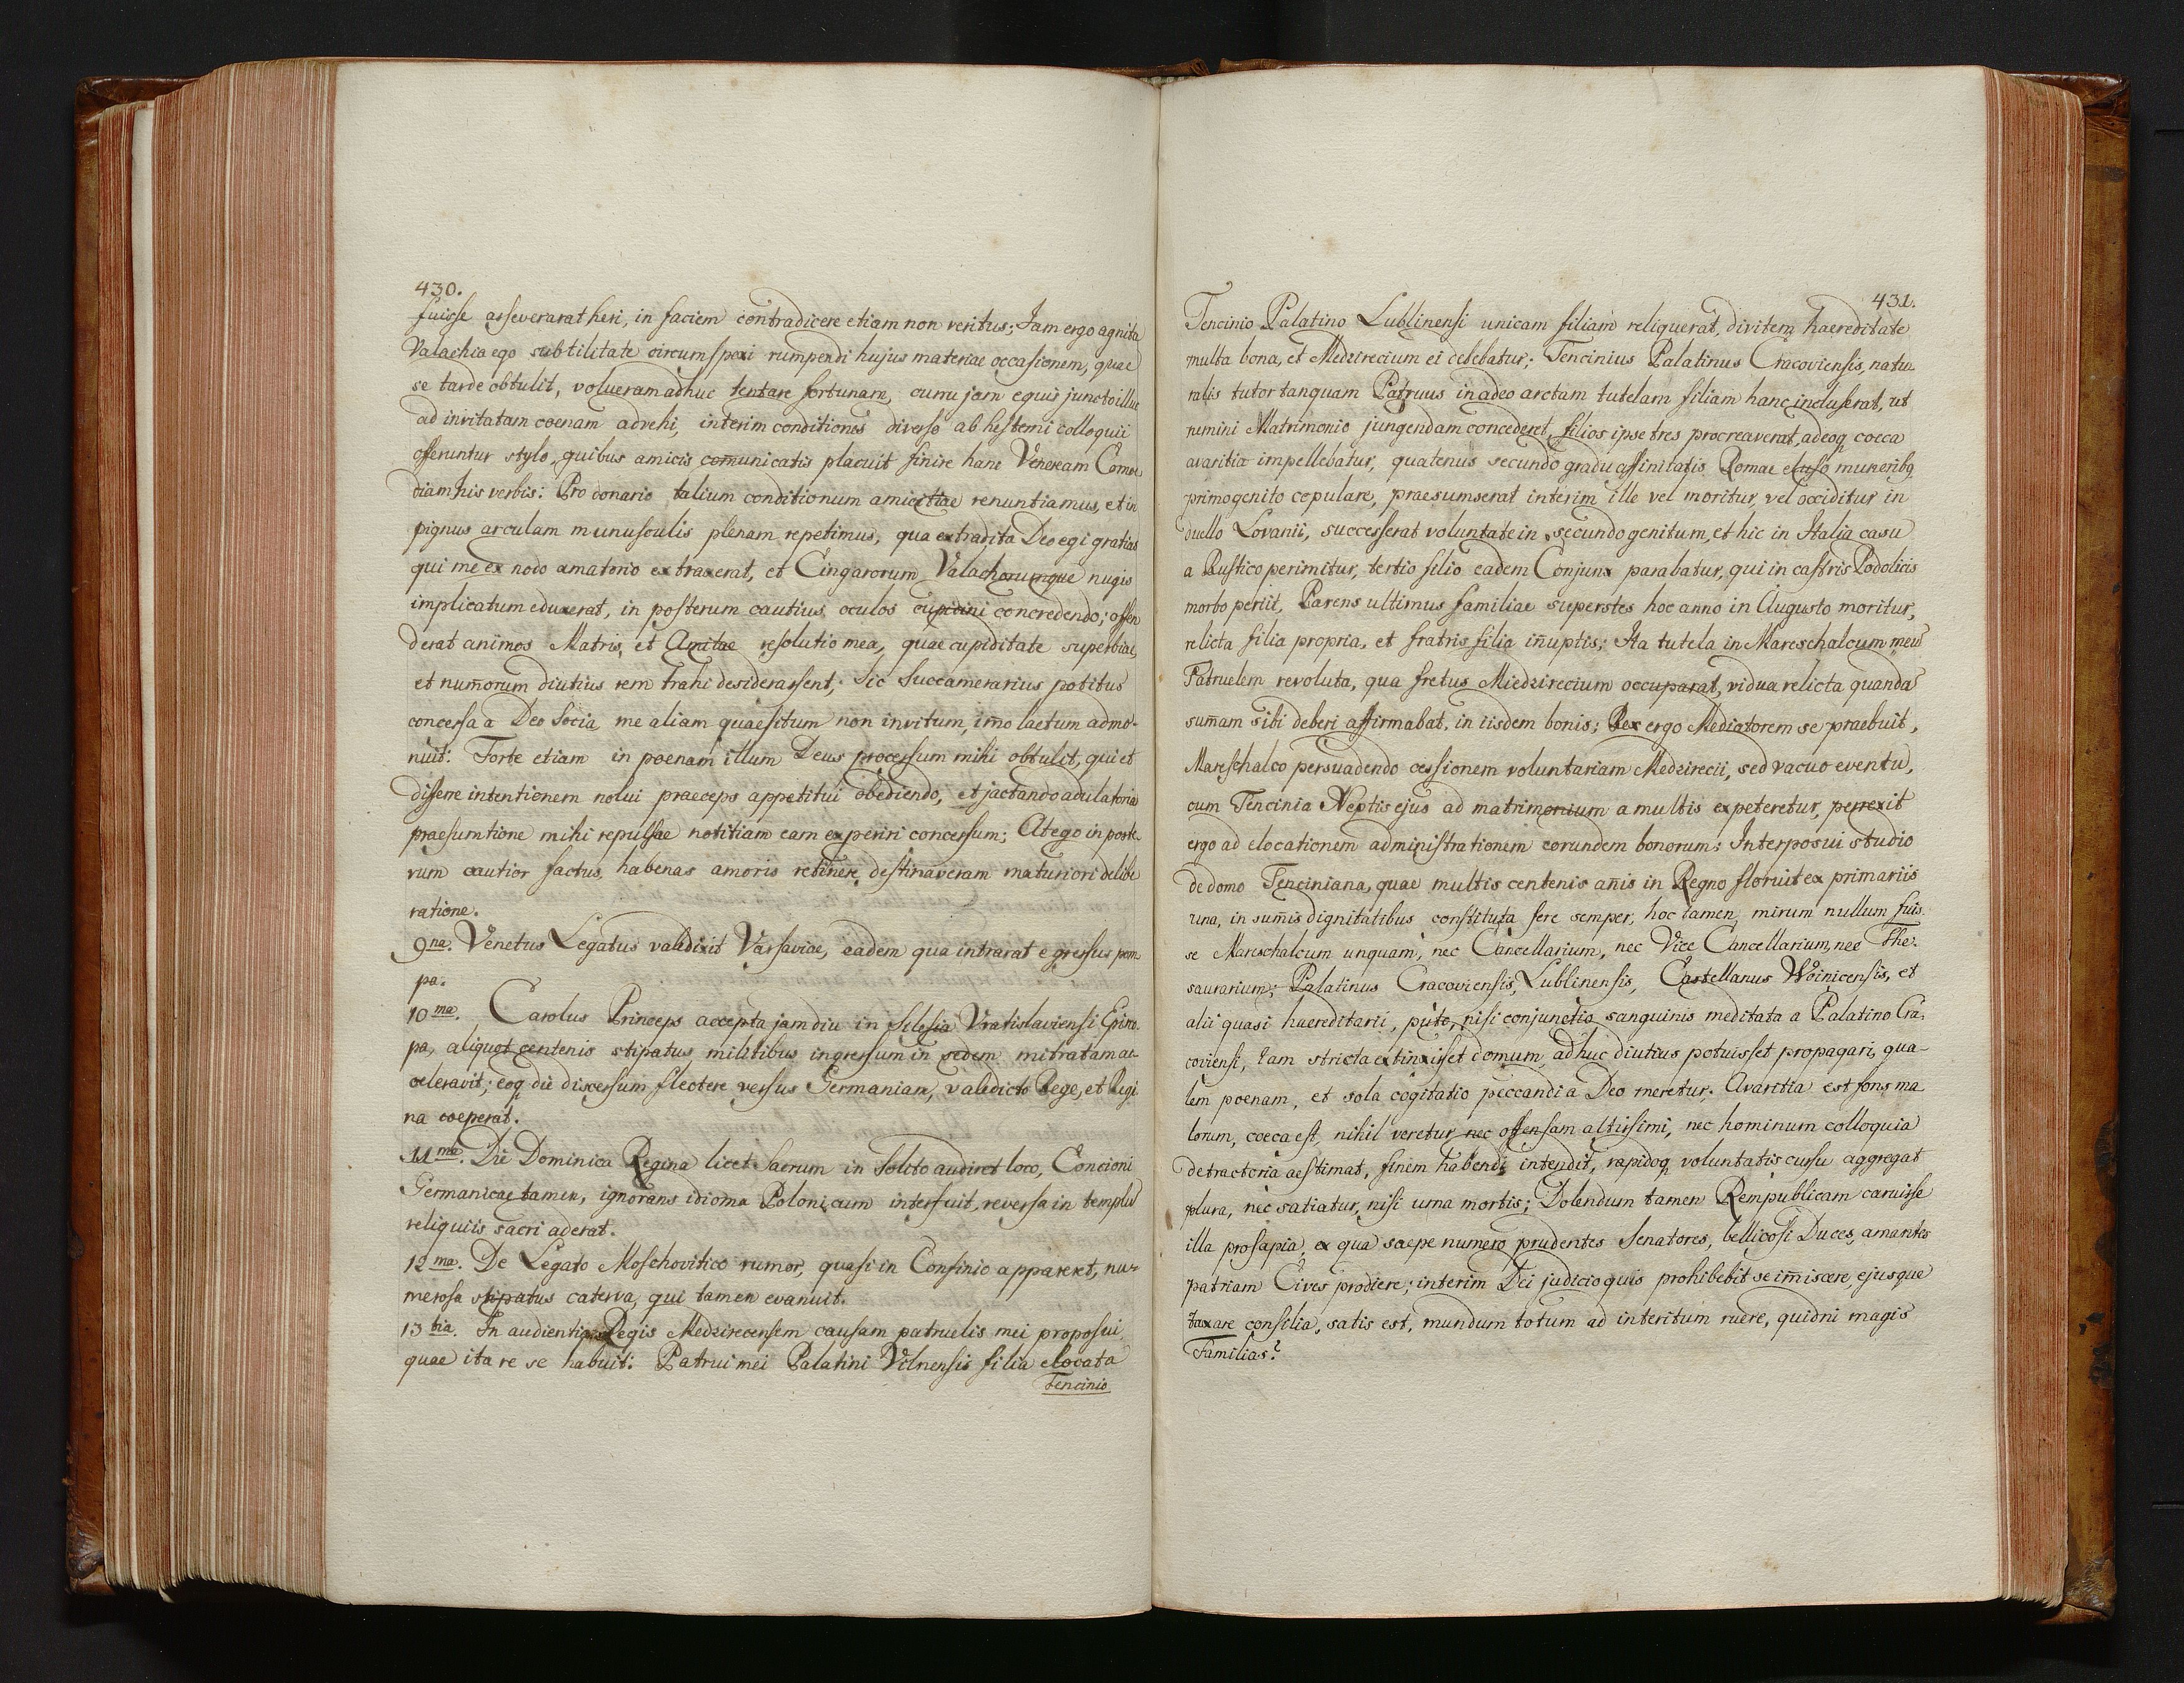 430.
fuisse asseverarat heri, in faciem contradicere etiam non veritus; Jam ergo agnita
Valachia ego subtilitate circumspexi rumpendi hujus materiae occasionem, quae
se tarde obtulit, volueram adhuc tentare fortunam, curru jam equis juncto illuc
ad invitatam coenam advehi, interim conditiones diverso ab hesterni colloquii
offeruntur stylo, quibus amicis com̄unicatis placuit finire hanc Veneream Comoe
diam his verbis: Pro donario talium conditionum amicitiae renuntiamus, et in
pignus arculam munusculis plenam repetimus, qua extradita Deo egi gratias
qui me ex nodo amatorio extraxerat, et Cingarorum Valachorumque nugis
implicatum eduxerat, in posterum cautius oculos cupidini concredendo; offen
derat animos Matris, et Amitae resolutio mea, quae cupiditate superbiae,
et num̄orum diutius rem trahi desiderassent; Sic Succamerarius potitus
concessa a Deo Socia, me aliam quaesitum non invitum, im̄o laetum admo-
nuit: Forte etiam in poenam illum Deus processum mihi obtulit, qui et
differre intentionem nolui praeceps appetitui obediendo, et jactando adulatoria
praesumtione mihi repulsae notitiam eam experiri concessum; At ego in poste
rum cautior factus, habenas amoris retinere destinaveram maturiori delibe
ratione.
9na. Venetus Legatus valedixit Varsaviae, eadem qua intrarat egressus pom
pa.
10ma. Carolus Princeps accepta jam diu in Silesia Vratislaviensi Episco
pa, aliquot centenis stipatus militibus ingressum in sedem mitratam ac
celeravit; eoq die discessum flectere versus Germaniam, valedicto Rege, et Regi
na coeperat.
11ma. Die Dominica Regina licet Sacrum in Solito audiret loco, Concioni
Germanicae tamen, ignorans idioma Polonicum interfuit, reversa in templū
reliquiis sacri aderat.
12ma. De Legato Moschovitico rumor, quasi in Confinio appareret, nu-
merosa stipatus caterva, qui tamen evanuit.
13tia. In audientia Regis Medzirecensem causam patruelis mei proposui,
quae ita re se habuit: Patrui mei Palatini Vilnensis filia elocata
Tencinio
431.
Tencinio Palatino Lublinensi unicam filiam reliquerat, divitem haereditate
multa bona, et Medzirecium ei debebatur; Tencinius Palatinus Cracoviensis, natu-
ralis tutor tanquam Patruus in adeo arctam tutelam filiam hanc incluserat, ut
nemini Matrimonio jungendam concederet, filios ipse tres procreaverat, adeoq coeca
avaritia impellebatur, quatenus secundo gradu affinitatis Romae eluso muneribq
primogenito copulare, praesumserat interim ille vel moritur, vel occiditur in
duello Lovanii, successerat voluntate in secundo genitum, et hic in Italia casu
a Rustico perimitur, tertio filio eadem Conjunx parabatur, qui in castris Podolicis
morbo periit, Parens ultimus familiae superstes hoc anno in Augusto moritur,
relicta filia propria, et fratris filia in̄uptis; Ita tutela in Mareschalcum meū
Patruelem revoluta, qua fretus Miedzirecium occuparat, vidua relicta quandā
sum̄am sibi deberi affirmabat, in iisdem bonis; Rex ergo Mediatorem se praebuit,
Mareschalco persuadendo cessionem voluntariam Medzirecii, sed vacuo eventu,
cum Tencinia Neptis ejus ad matrimonium a multis expeteretur, perrexit
ergo ad elocationem administrationem eorundem bonorum; Interposui studio
de domo Tenciniana, quae multis centenis an̄is in Regno floruit ex primariis
una, in sum̄is dignitatibus constituta fere semper, hoc tamen mirum nullum fuis-
se Mareschalcum unquam, nec Cancellarium, nec Vice Cancellarium, nec The-
saurarium; Palatinus Cracoviensis, Lublinensis, Castellanus Woinicensis, et
alii quasi haereditarii, puto, nisi conjunctio sanguinis meditata a Palatino Cra-
coviensi, tam stricta extinxisset domum, adhuc diutius potuisset propagari, qua-
lem poenam, et sola cogitatio peccandi a Deo meretur; Avaritia est fons ma
lorum, coeca est, nihil veretur nec offensam altissimi, nec hominum colloquia
detractoria aestimat, finem habendi intendit, rapidoq voluntatis cursu aggregat
plura, nec satiatur, nisi urna mortis; Dolendum tamen Rempublicam caruisse
illa prosapia, ex qua saepe numero prudentes Senatores, bellicosi Duces, amantes
patriam Cives prodiere; interim Dei judicio quis prohibebit se im̄iscere, ejusque
taxare consilia, satis est, mundum totum ad interitum ruere, quidni magis
Familias?